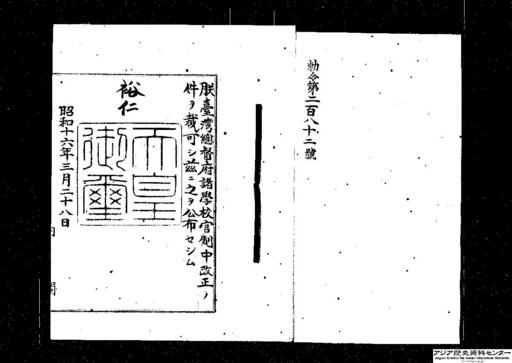 勅令第二百八十二號
朕臺灣總督府諸學校官制中改正ノ
件ヲ裁可シ玆ニ之ヲ公布セシム
裕仁
天皇
御璽
昭和十六年三月二十八日
アジア歴史資料センター
Japan Center for Asian Historical Records